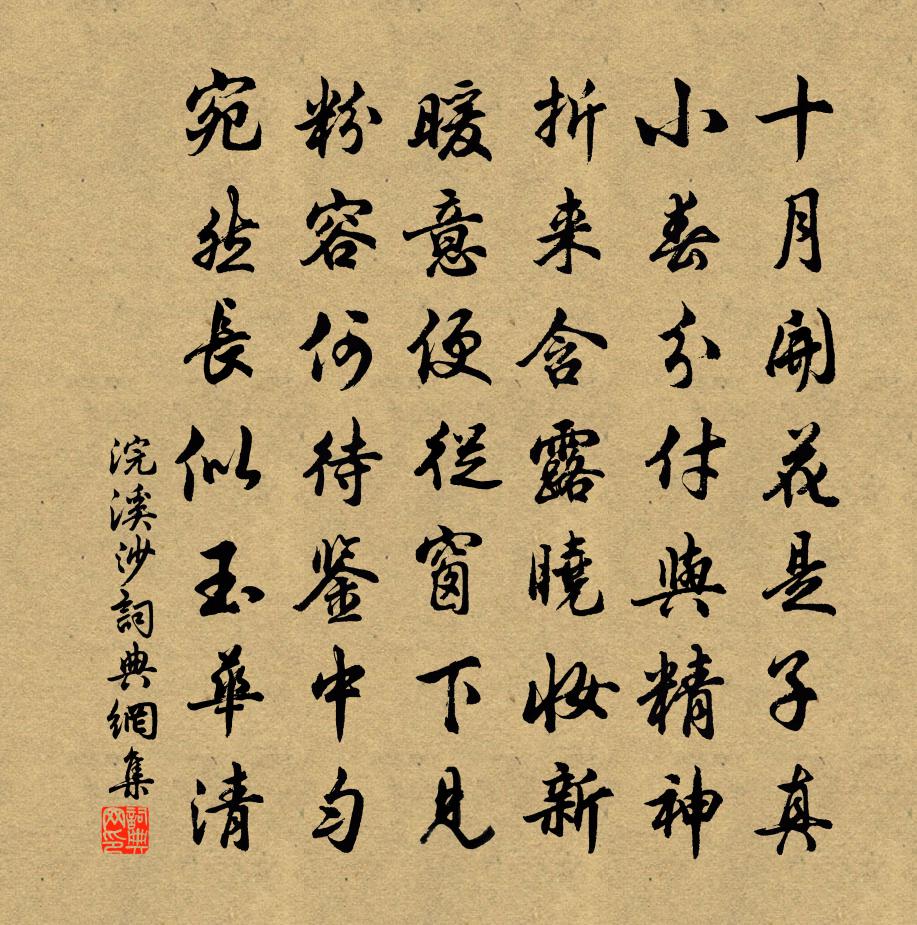 十月開花是子真
小春分付與精神
折来含露曉妝新
暖意便從窗下見
粉容何待鉴中勻
宛然長似玉華清
浣溪沙詞典網集
詞典网印